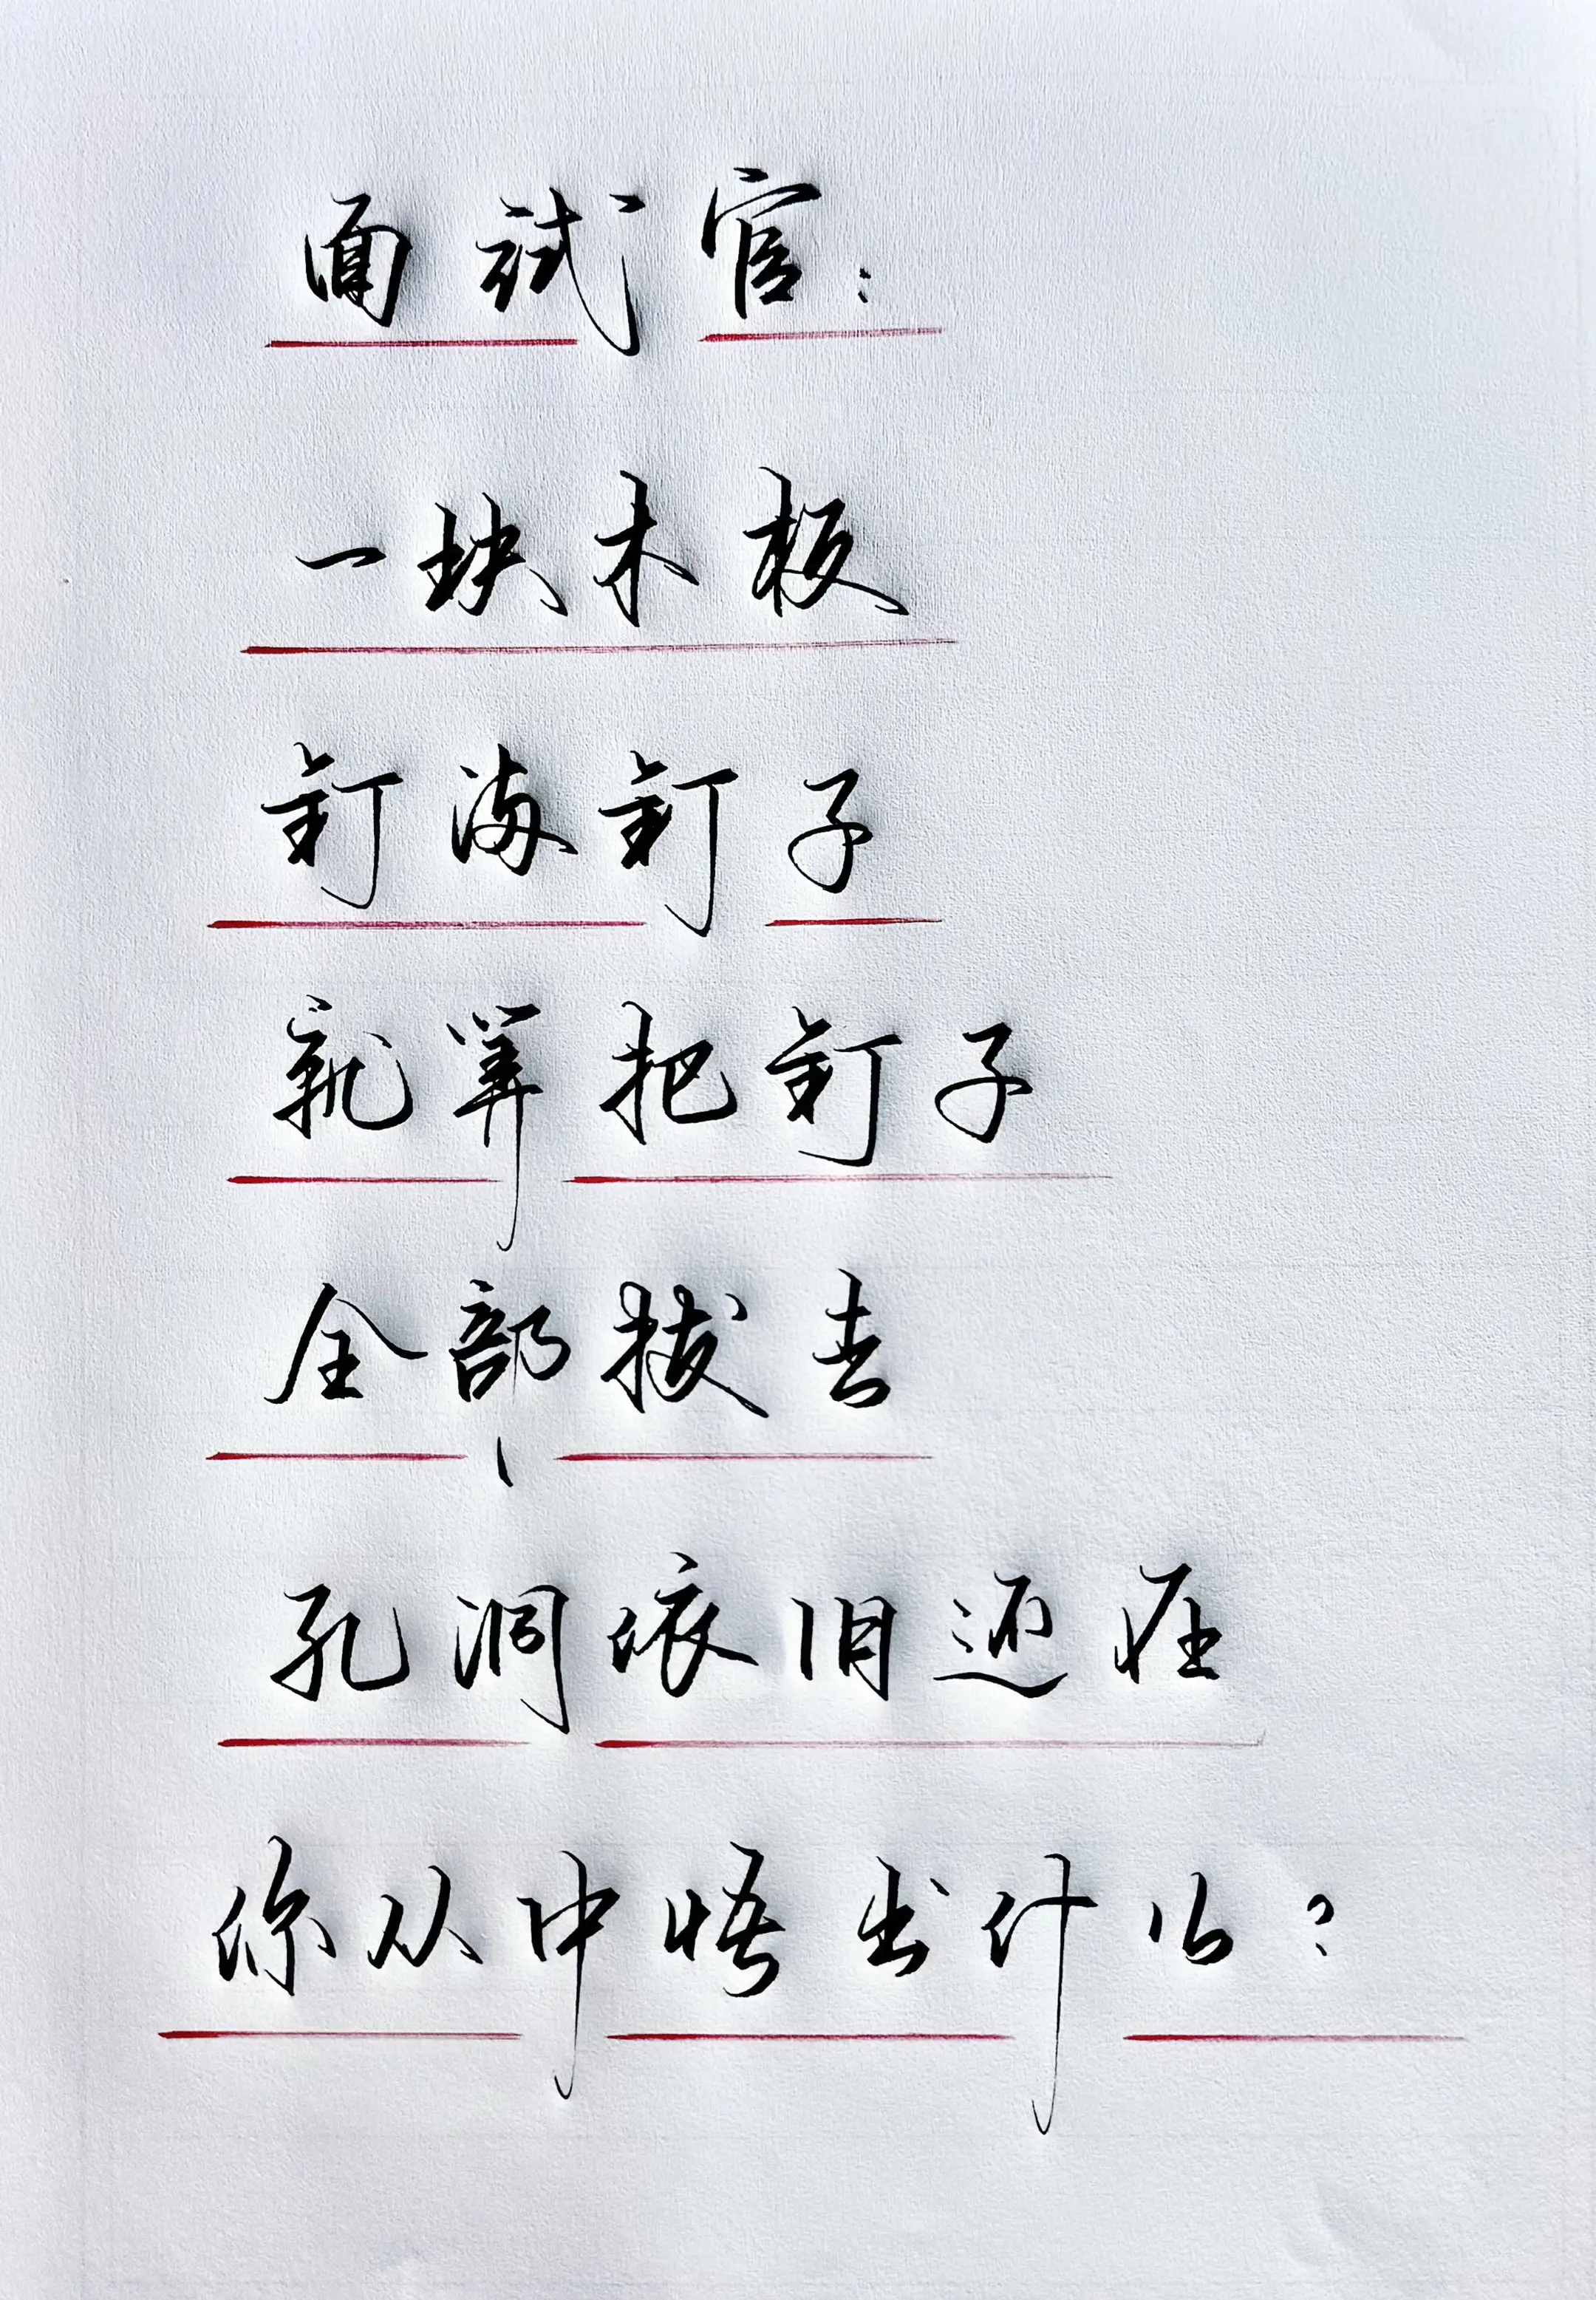 面试官：
一块木板
钉满钉子
就算把钉子
全部拔去
孔洞依旧还在
你从中悟出什么？